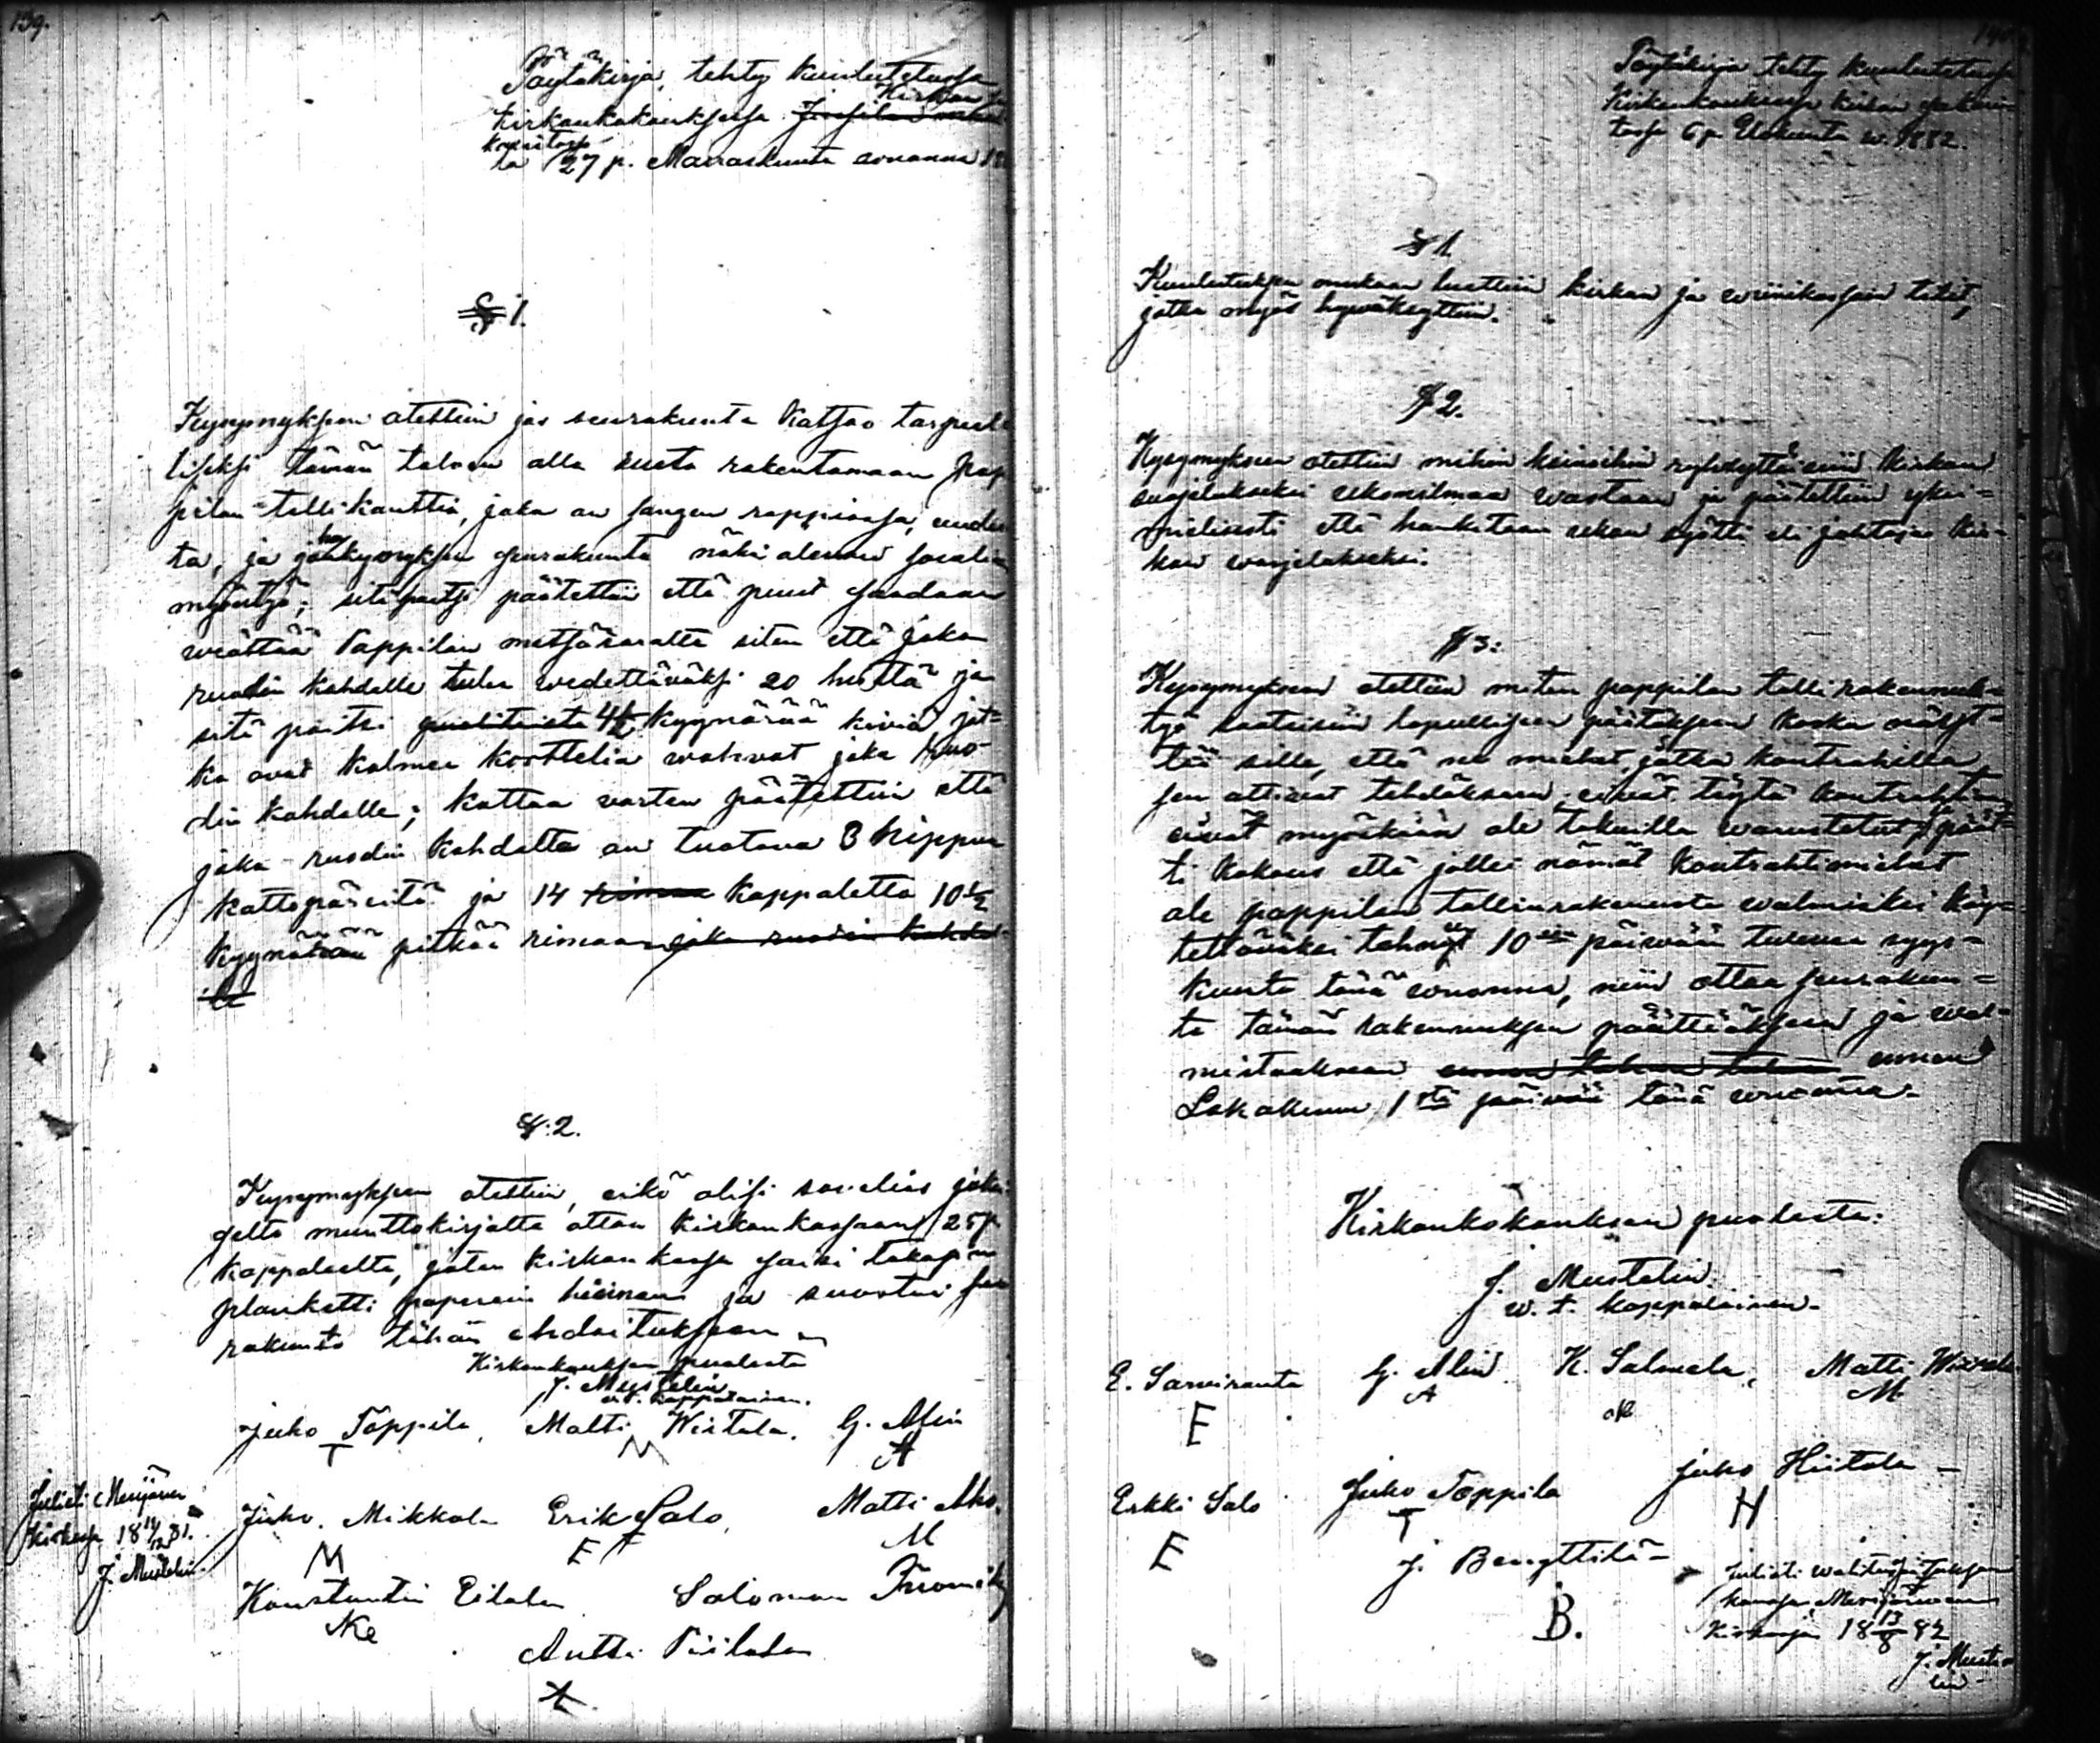 139.
Pöytäkirja, tehty kuulutetussa
kirkonkokouksessa Kirkon
27 p. Marraskuuta vuonna
§ 1.
Kysymyksen otettiin jos seurakunta katsoo tarpeel
liseksi tämän talven alla uusta rakentamaan pap
pilan tallikarttia, joka on sangen rappiossa, uudes
ta, ja johon kysymyksen seurakunta näki olevan
myöntyä; sitäpaitsi päätettiin että puut saadaan
wedättää Pappilan metsäsaralta siten että joka
ruodin kohdalle tulee wedettäväksi 20 hirttä ja
sitä paitsi 4½ kyynärää kiviä jot=
ka ovat kolmea korttelia wahvat joka ruo-
din kohdalle; kattoa varten päätettiin että
joka ruodin kohdalta on tuotava 3 kippua
kattopäreitä ja 14 rimaa kappaletta 10½
kyynärää pitkää rimaa joka ruodin kohdal
le
§:2.
Kysymyksen otettiin, eikö olisi sovelias joka
gelta muuttokirjalta ottaa kirkonkassaan 25 p
kappaleelta, joten kirkon kassa saisi takasin
planketti paperein hinnan ja suostui seu
rakunta tähän ehdoitukseen
Kirkonkokouksen puolesta
J. Mustelin
v.t. kappalainen.
Juho Toppila, Matti Wiitala. G. Alin
T M A
Juho. Mikkola Erik Salo, Matti Aho.
M E M
Konstantin Eilola Salomon
Ke
Antti Piilola
A.
Julisti Merijärven
kirkossa 18 11/12 81.
J. Mustelin.
140
Pöytäkirja tehty kuulutetussa
Kirkonkokouksessa kirkon sakaris
tossa 6 p. Elokuuta w. 1882.
§ 1
Kuulutuksen mukaan luettiin kirkon ja wiinikassain tilit,
jotka myös hyväksyttiin.
§ 2.
Kysymykseen otettiin mihin keinoihin ryhdyttäisiin kirkon
suojelukseksi ukonilmaa wastaan ja päätettiin yksi=
mielisesti että hankitaan ukon syötti eli johtaja kir-
kon warjelukseksi.
§ 3:
Kysymykseen otettiin miten pappilan talli rakennuk=
työ saataisiin lopulliseen päätökseen koska näyt=
tää sille, että ne miehet, jotka kontrahilla
sen ottivat tehdäkseen, eivät täytä kontrahtia
eivät myöskään ole takuilla warustetut, päät=
ti kokous että jollei nämät kontrahtimiehet
ole pappilan tallinrakennusta walmiiksi käy=
tettäväksi tehnyt 10een päivään tulevaa syys=
kuuta tänä vuonna, niin ottaa seurakun=
ta tämän rakennuksen päättääksensä ja wal-
mistaaksean ennen
Lokakuun 1stä päivää tänä vuonna.
Kirkonkokouksen puolesta:
J. Mustelin.
w. t. kappalainen.
E. Sarviranta G. Alin. K. Salmela, Matti Wiirola
E A M
Erkki Salo Juho Toppila Juho Hiitola
E T H
J. Bengttilä
B.
Julisti
kanssa Merijärven
Kirkossa 18 13/8 82
J. Muste
lin